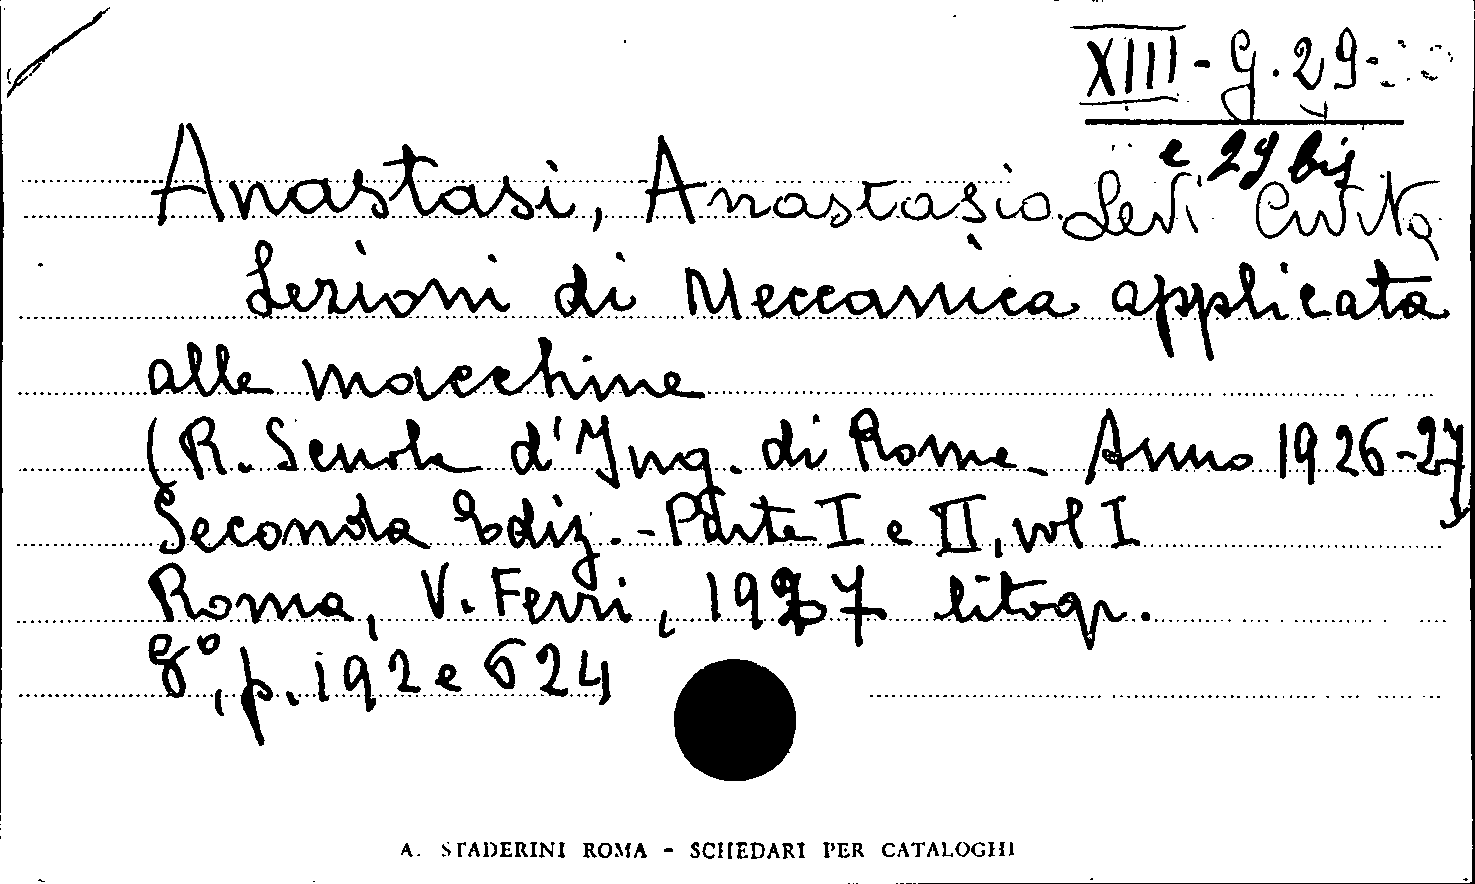 XIII - G. 29 -
e 29 bis
Anastasi, Anastasio. Levi Civita
Lezioni di Meccanica applicata
alle macchine
(R. Scuola d'Ing. di Roma - Anno 1926-27)
Seconda Ediz. - Parte I e II, vol I
Roma, V. Ferri, 1927 litogr.
8°, p. 192 e 624
A. STADERINI ROMA - SCHEDARI PER CATALOGHI